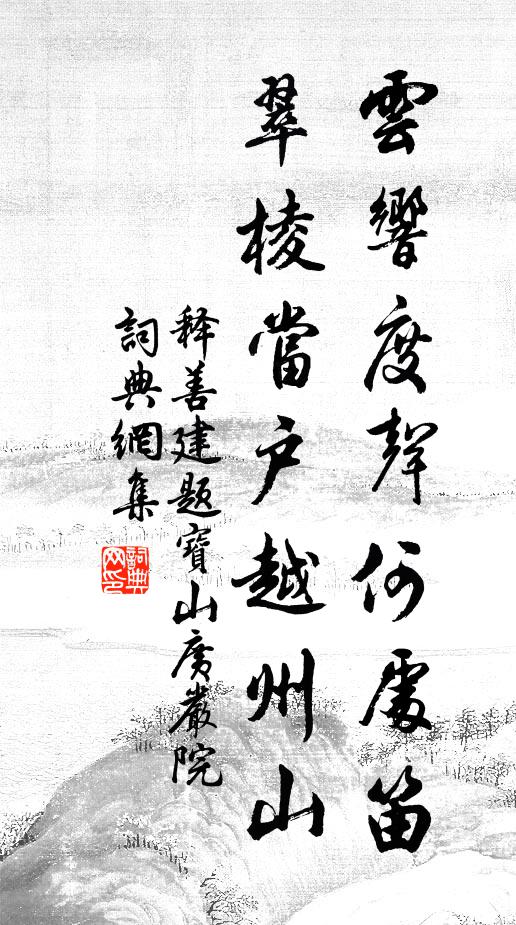 雲響度聲何處笛
翠棱當户越州山
释善建題寶山廣嚴院
詞典網集
詞典
网印